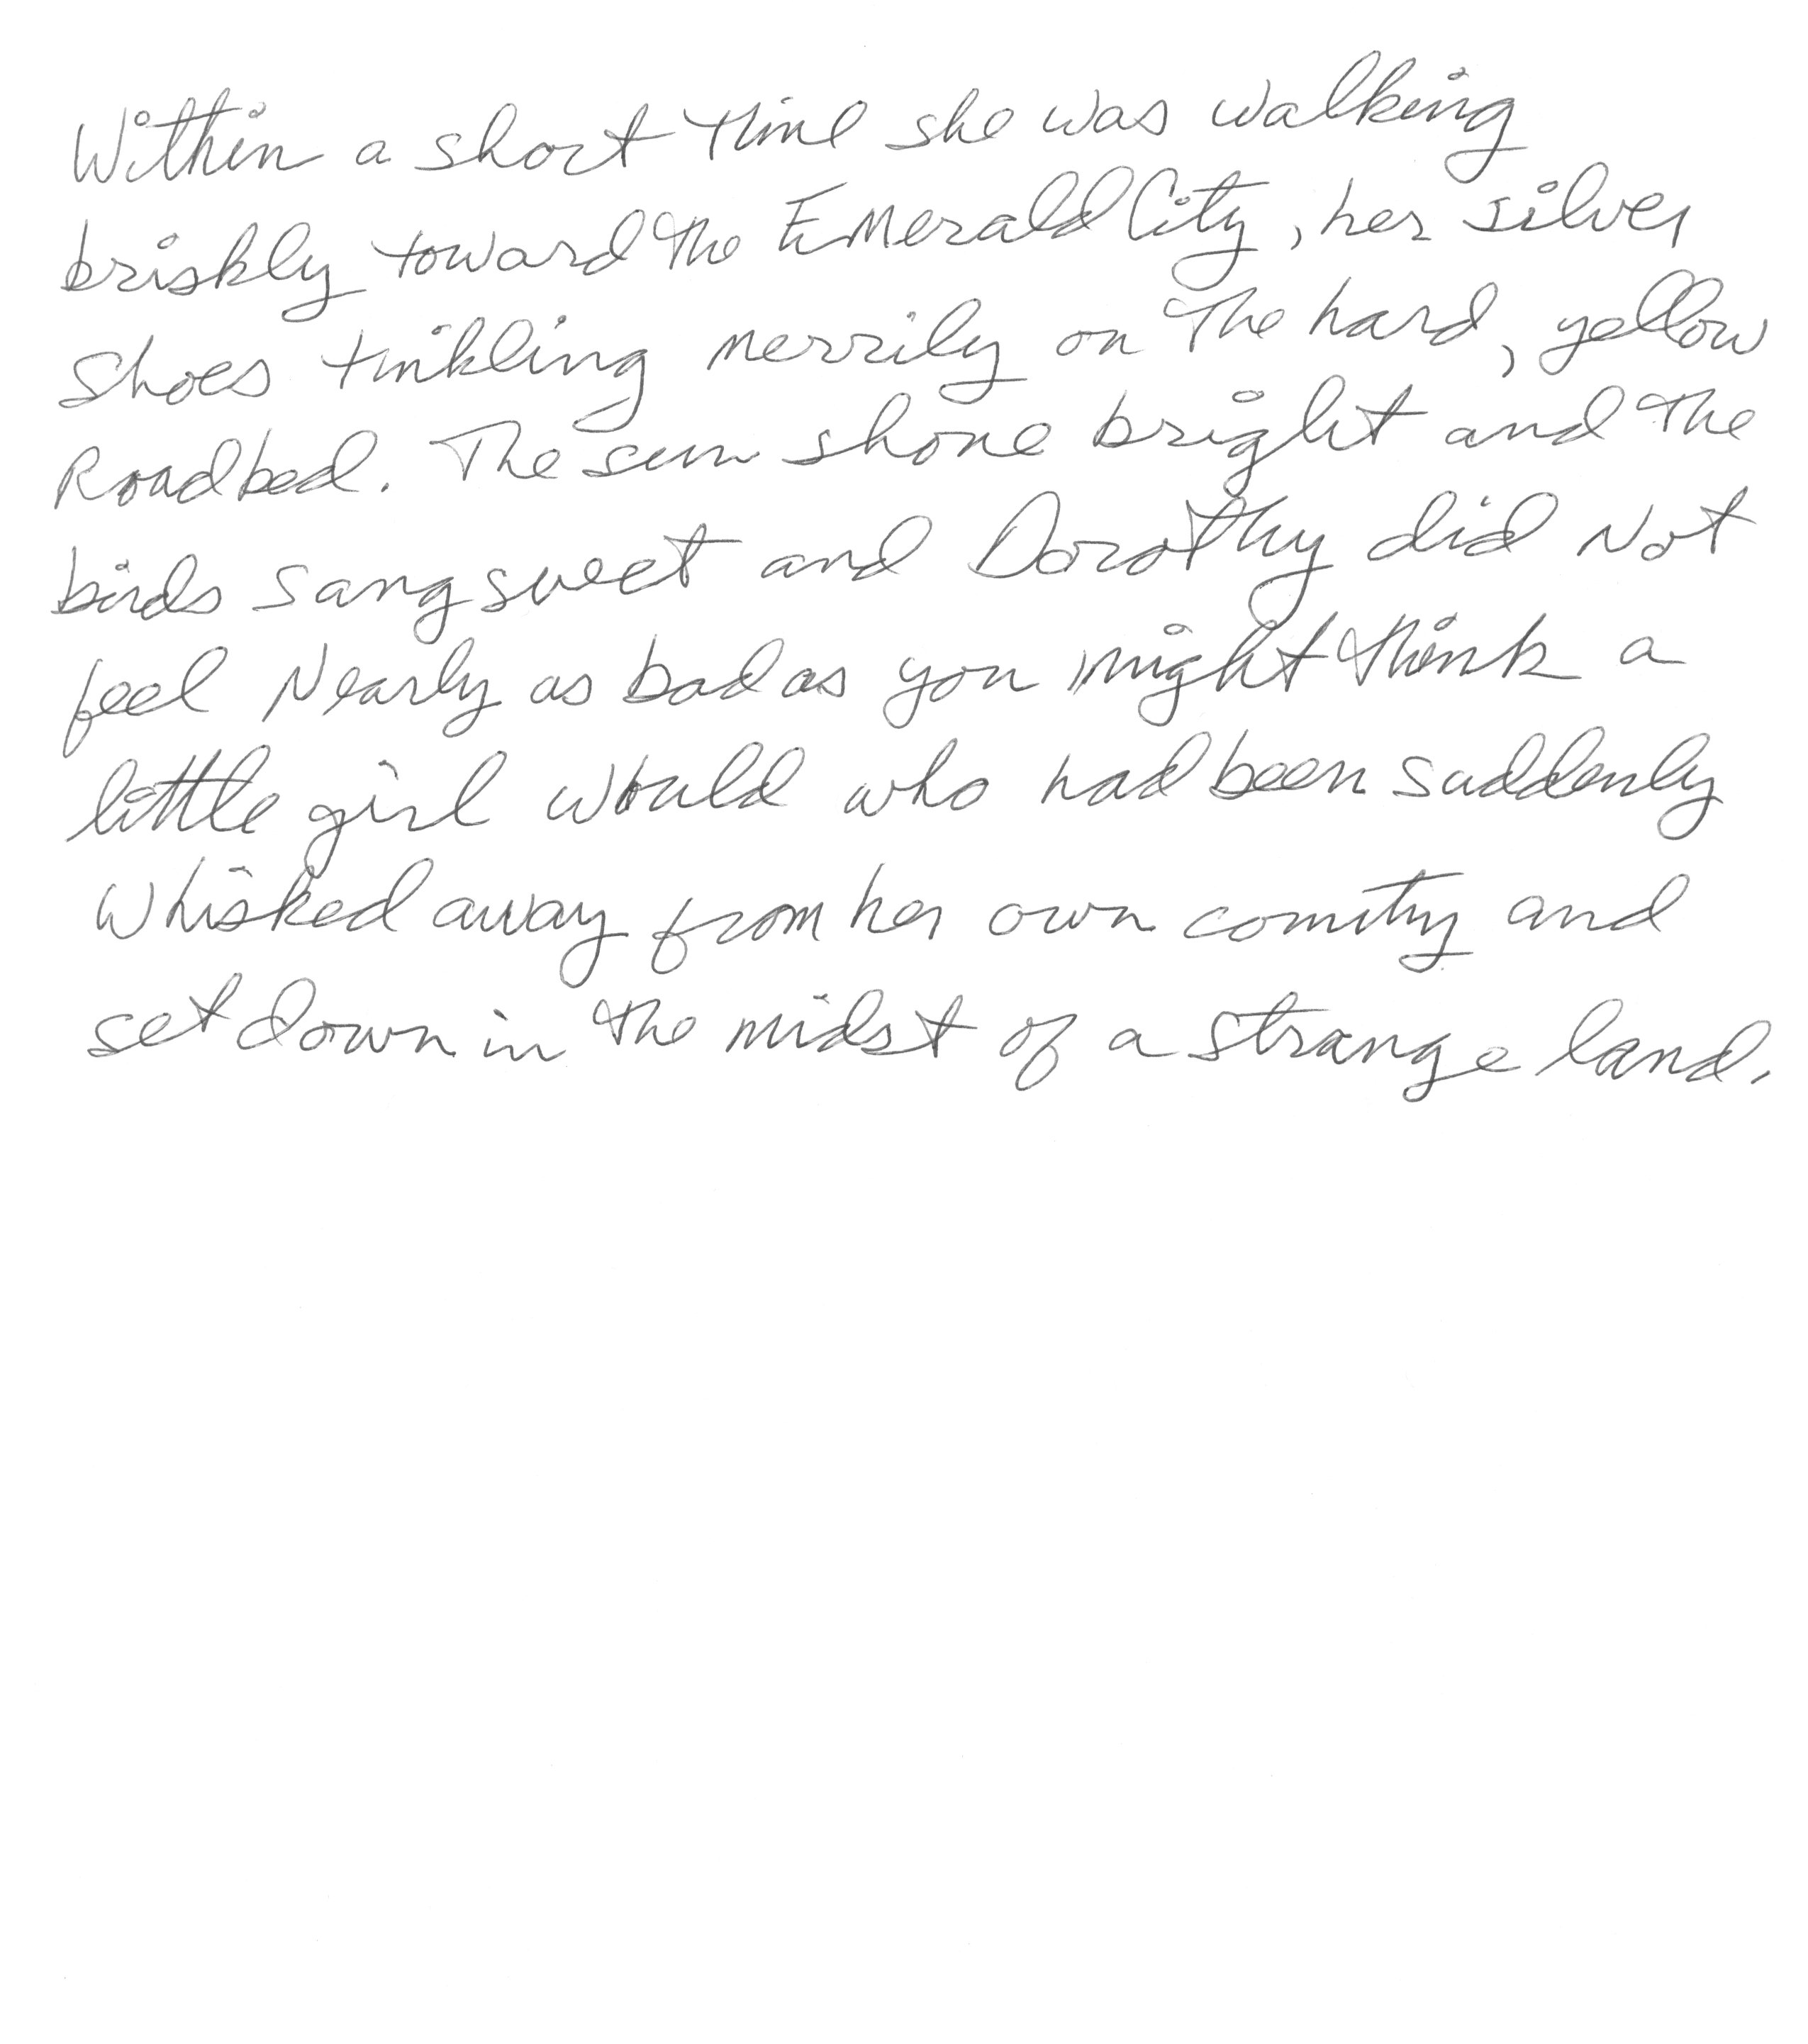 Within a short time she was walking
briskly toward the Emerald City, her silver
shoes tinkling merrily on the hard, yellow
Roadbed. The sun shone bright and the
birds sang sweet and Dorothy did not
feel nearly as bad as you might think a
little girl would who had been suddenly
whisked away from her own country and
set down in the midst of a strange land.